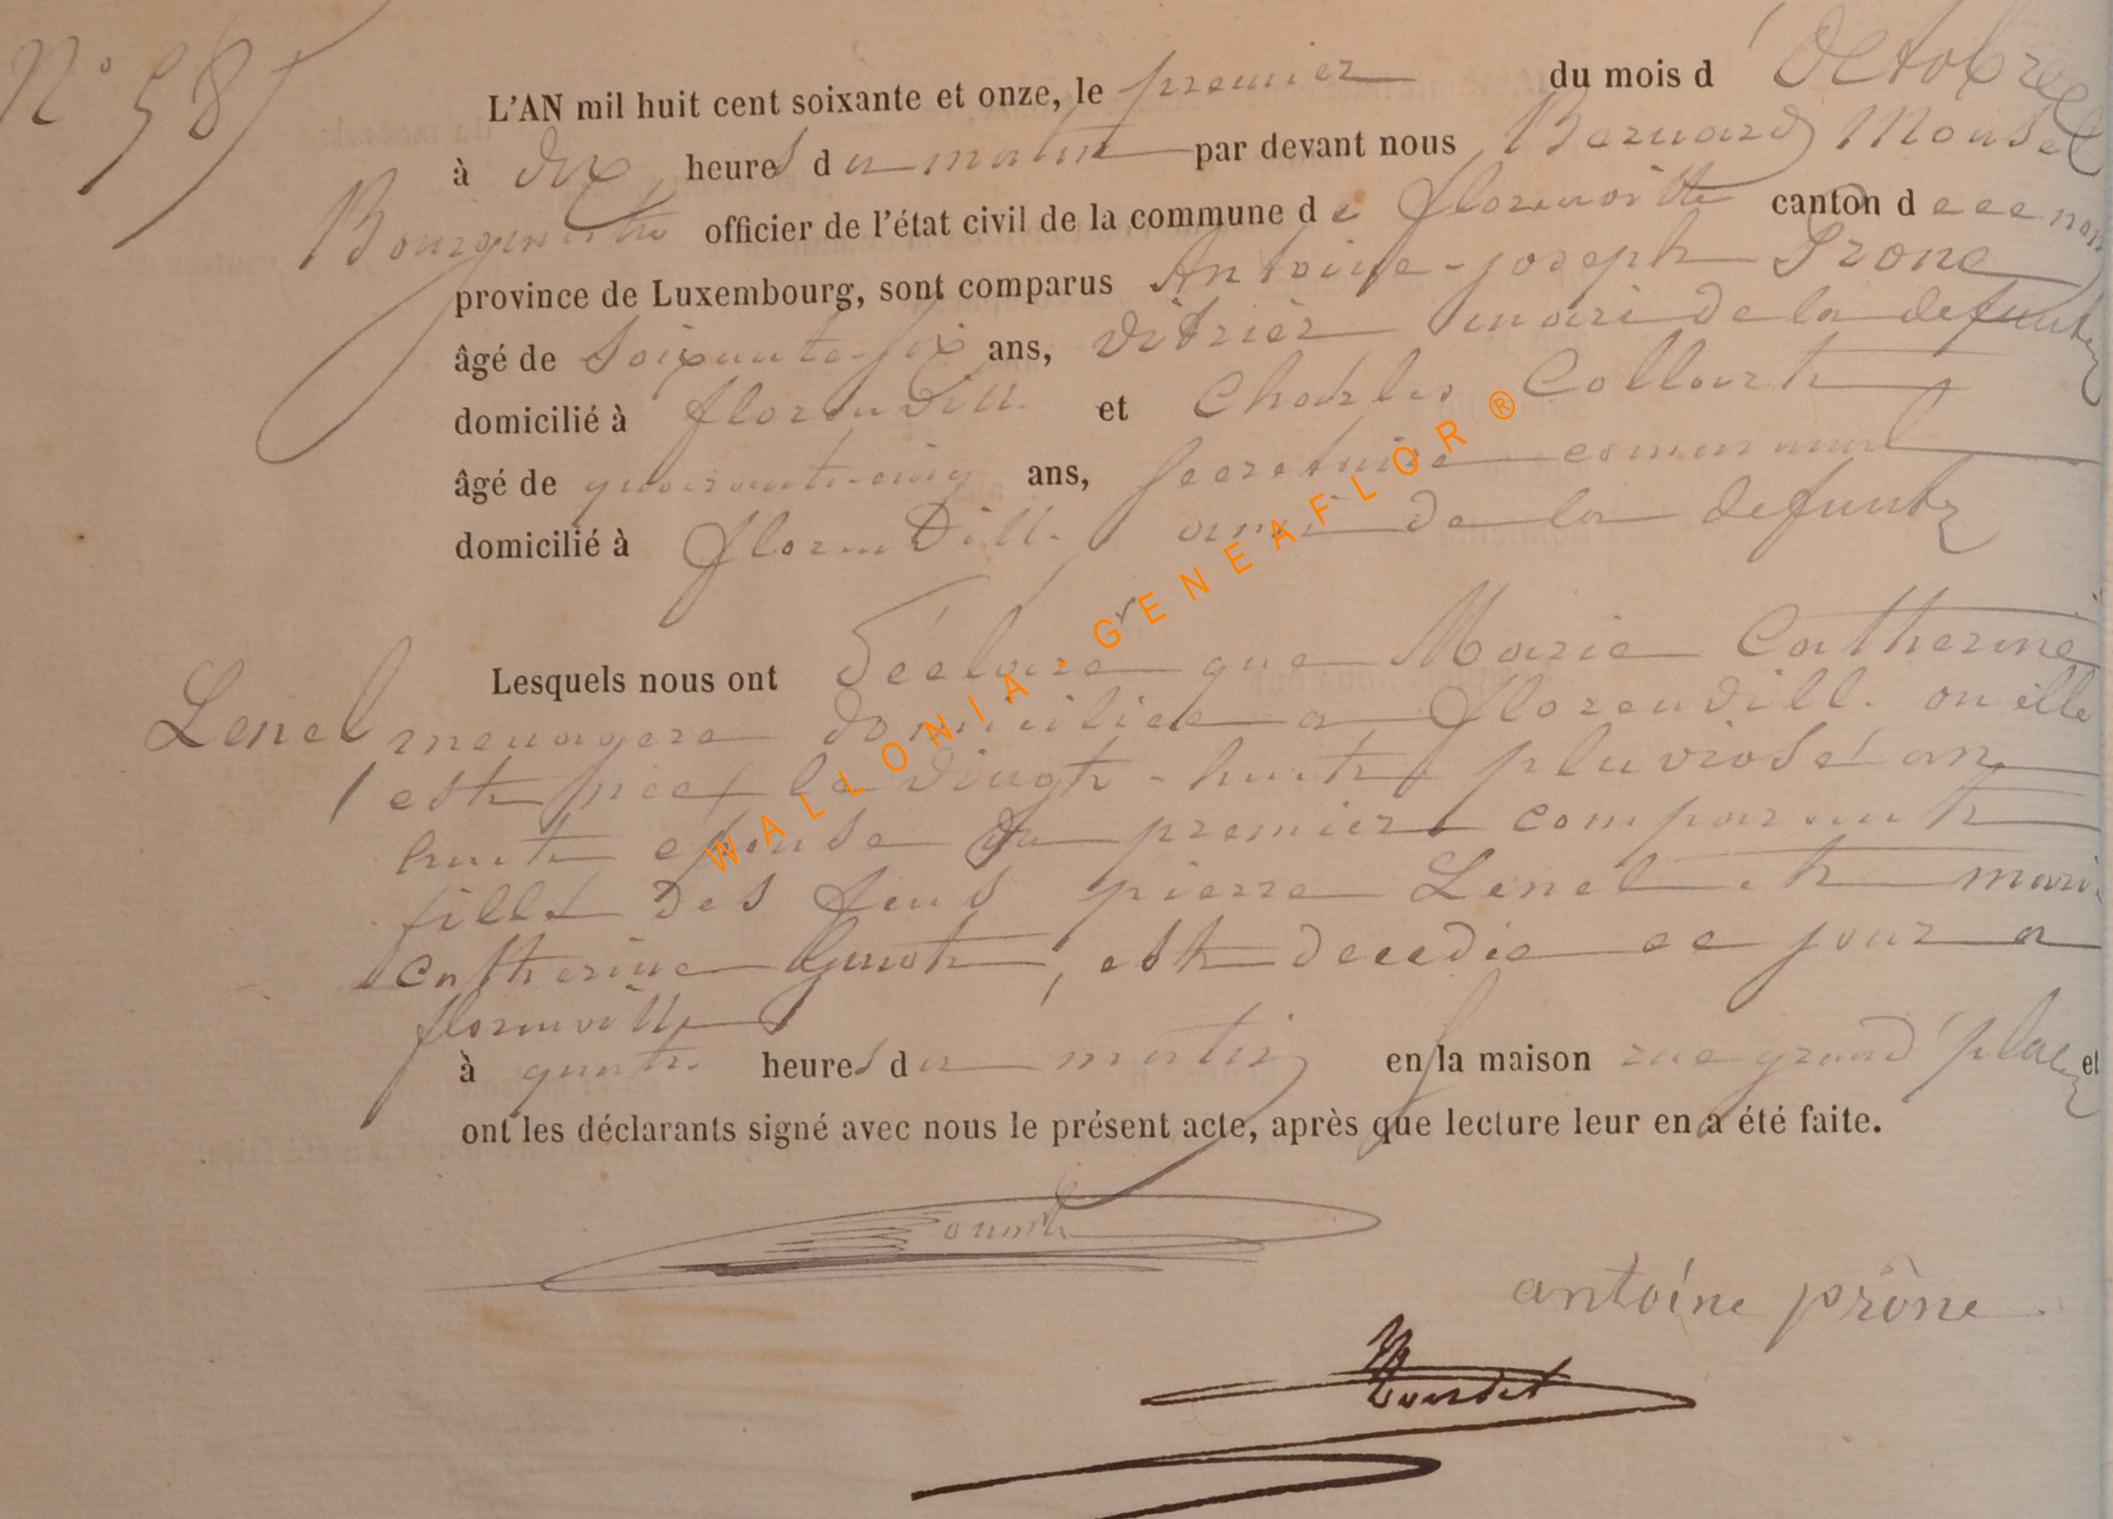 N° 58
L'AN mil huit cent soixante et onze, le premier du mois d'Octobre
à dix heures du matin par devant nous Bernard
Bourgmestre officier de l'état civil de la commune de florenville canton de ce nom
province de Luxembourg, sont comparus Antoine-joseph Prone
âgé de Soixante-six ans, vitrier mari de la defunte
domicilié à florenville et Charles Collart
âgé de quarante-cinq ans, secretaire communal
domicilié à florenville ami de la defunte
Lesquels nous ont Déclaré que Marie Catherine
Lenel menagere domiciliée a florenville ou elle
est née le vingt-huit pluviose an
huit epouse du premier comparant
fille des feus pierre Lenel et marie
catherine est decedée ce jour a
florenville
à quatre heures du matin en la maison rue grand'place et
ont les déclarants signé avec nous le présent acte, après que lecture leur en a été faite.
antoine prône
WALLONIA - GENEAFLOR ®